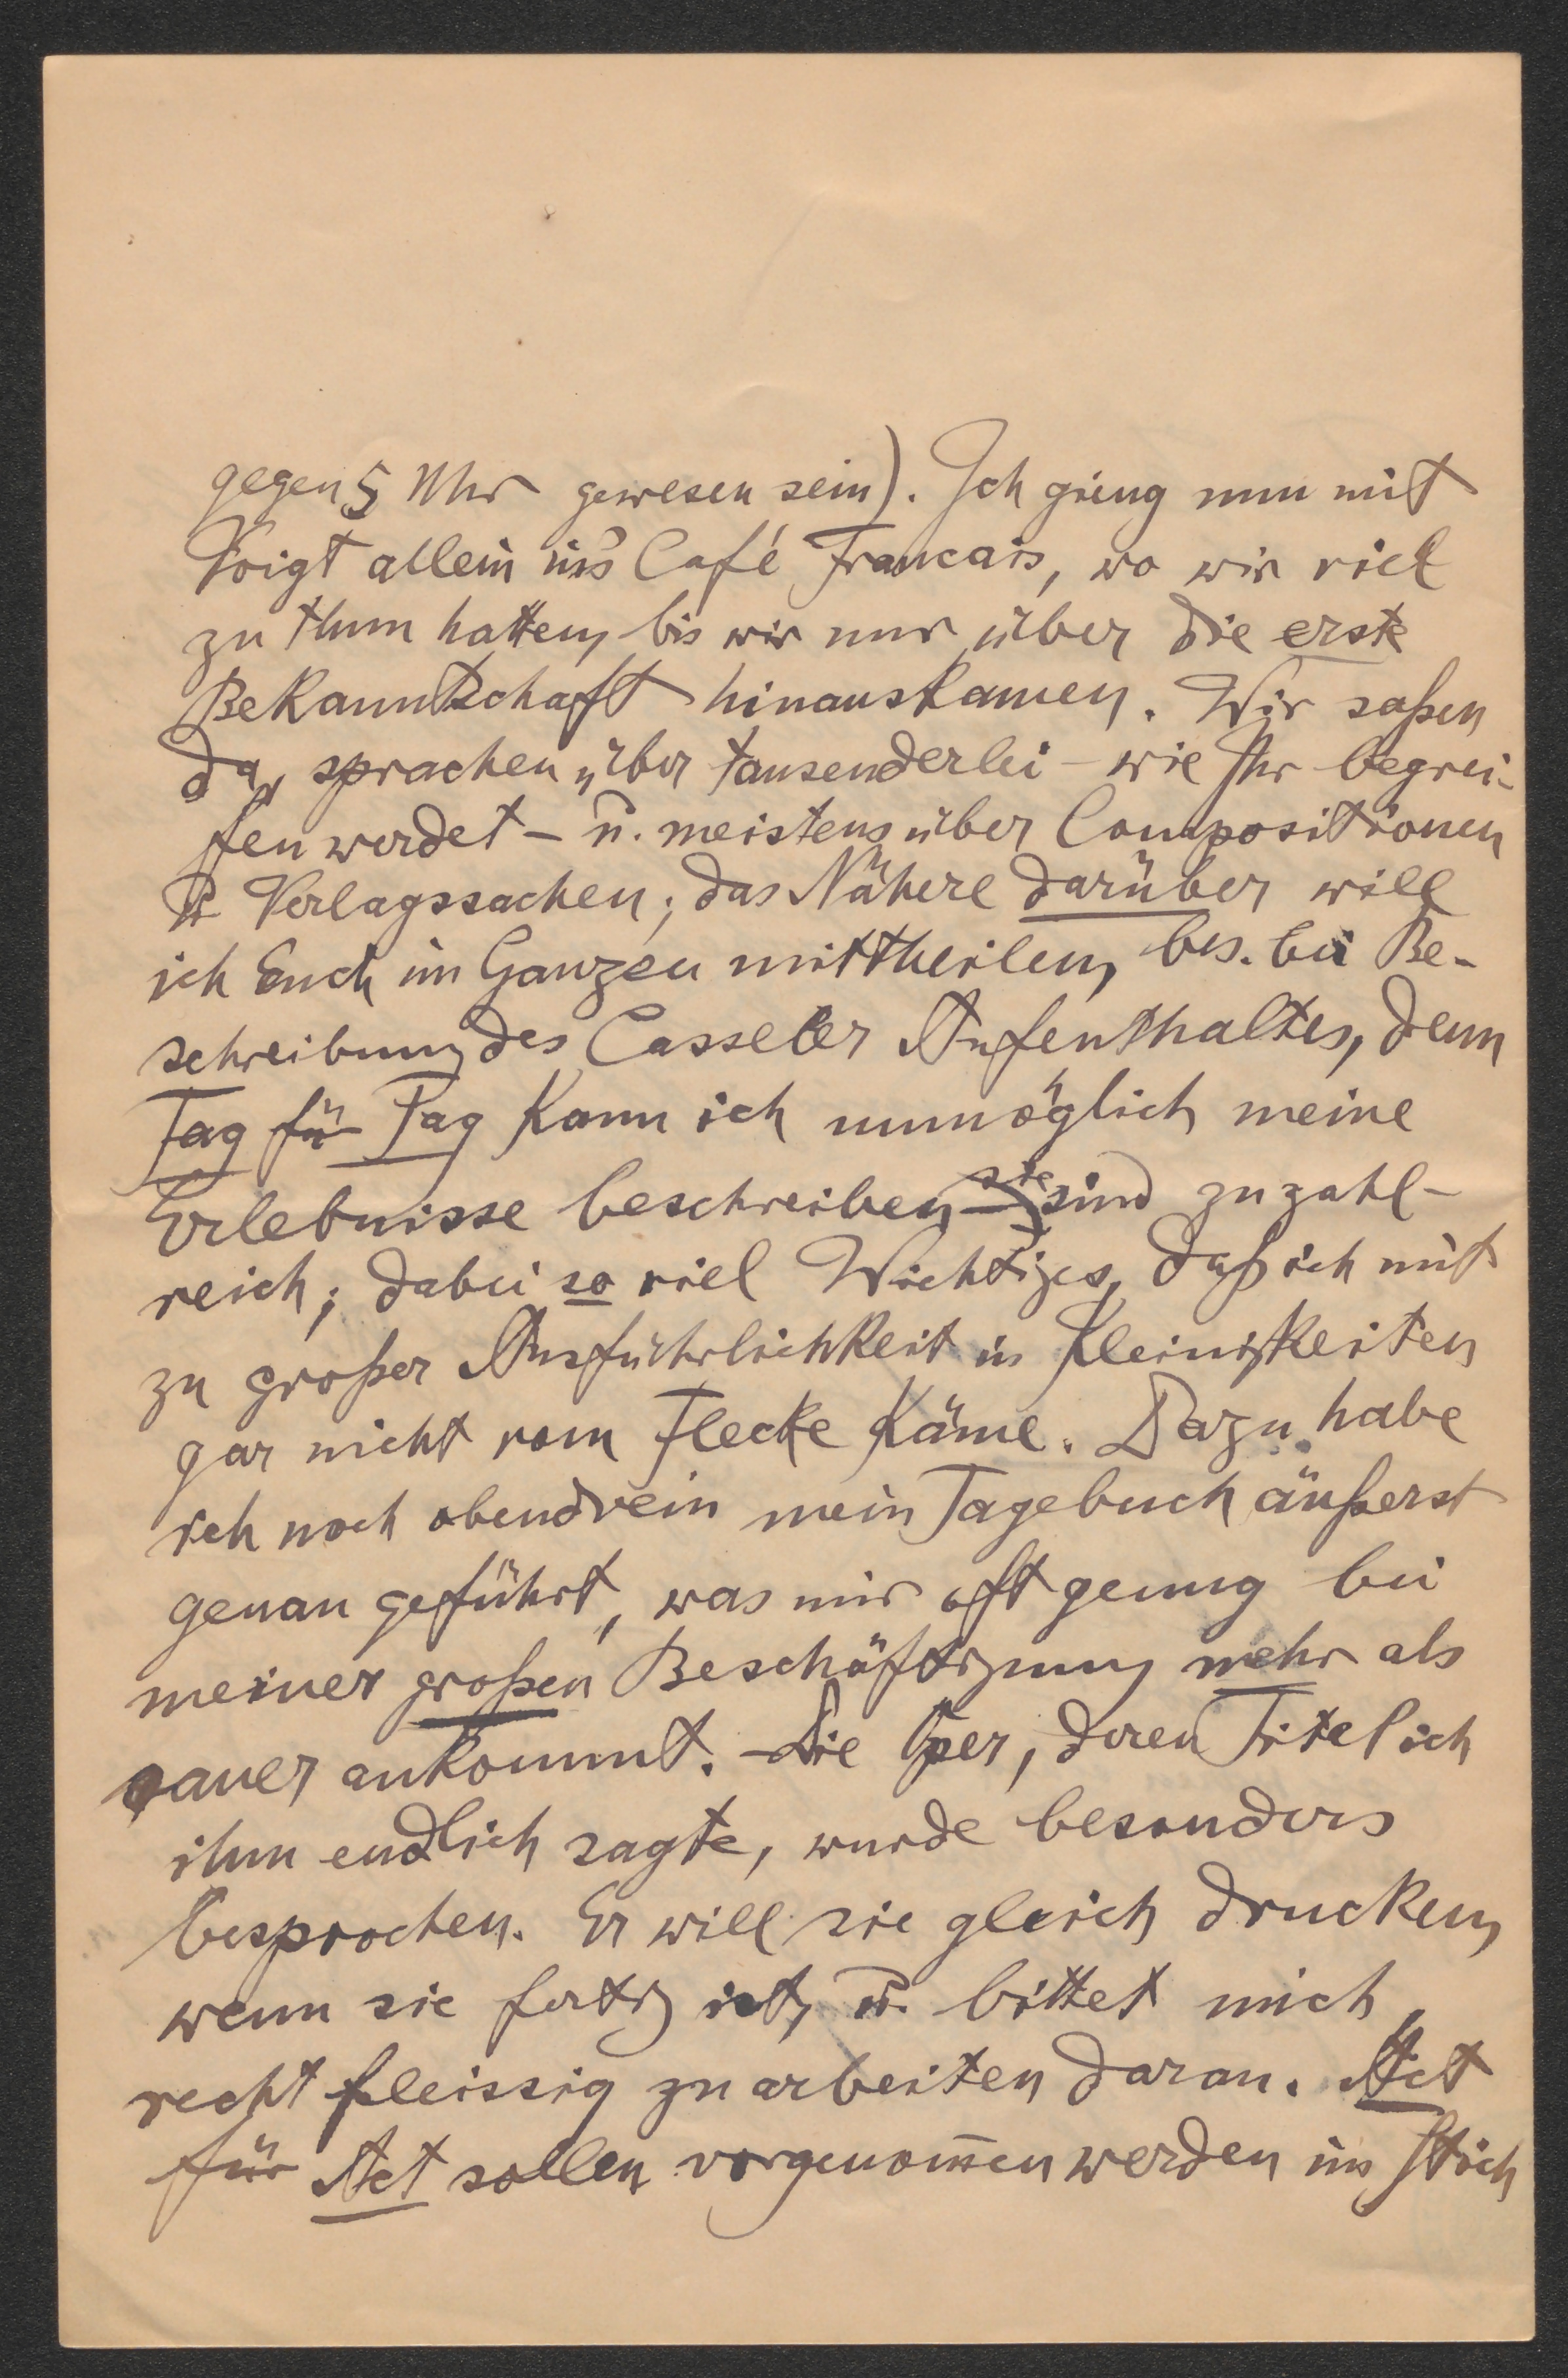 gegen 5 Uhr gewesen sein). Ich gieng nun mit
Voigt allein ins Café Francais, wo wir viel
zu thun hatten, bis wir nur über die erste
Bekanntschaft hinauskamen. Wir saßen
da, sprachen über tausenderlei – wie Ihr begrei-
fen werdet – u. meistens über Compositionen
u Verlagssachen; das Nähere darüber will
ich Euch im Ganzen mittheilen, bes. bei Be-
schreibung des Casseler Aufenthaltes, denn
Tag für Tag kann ich unmöglich meine
Erlebnisse beschreiben – sie sind zu zahl-
reich; dabei so viel Wichtiges, daß ich mit
zu großer Ausführlichkeit in Kleinigkeiten
gar nicht vom Flecke käme. Dazu habe
ich noch obendrein mein Tagebuch äußerst
genau geführt, was mir oft genug bei
meiner großen Beschäftigung mehr als
sauer ankommt. – Die Oper, deren Titel ich
ihm endlich sagte, wurde besonders
besprochen. Er will sie gleich drucken,
wenn sie fertig ist, u. bittet mich,
recht fleissig zu arbeiten daran. Act
für Act sollen vorgenom̄en werden im Stich